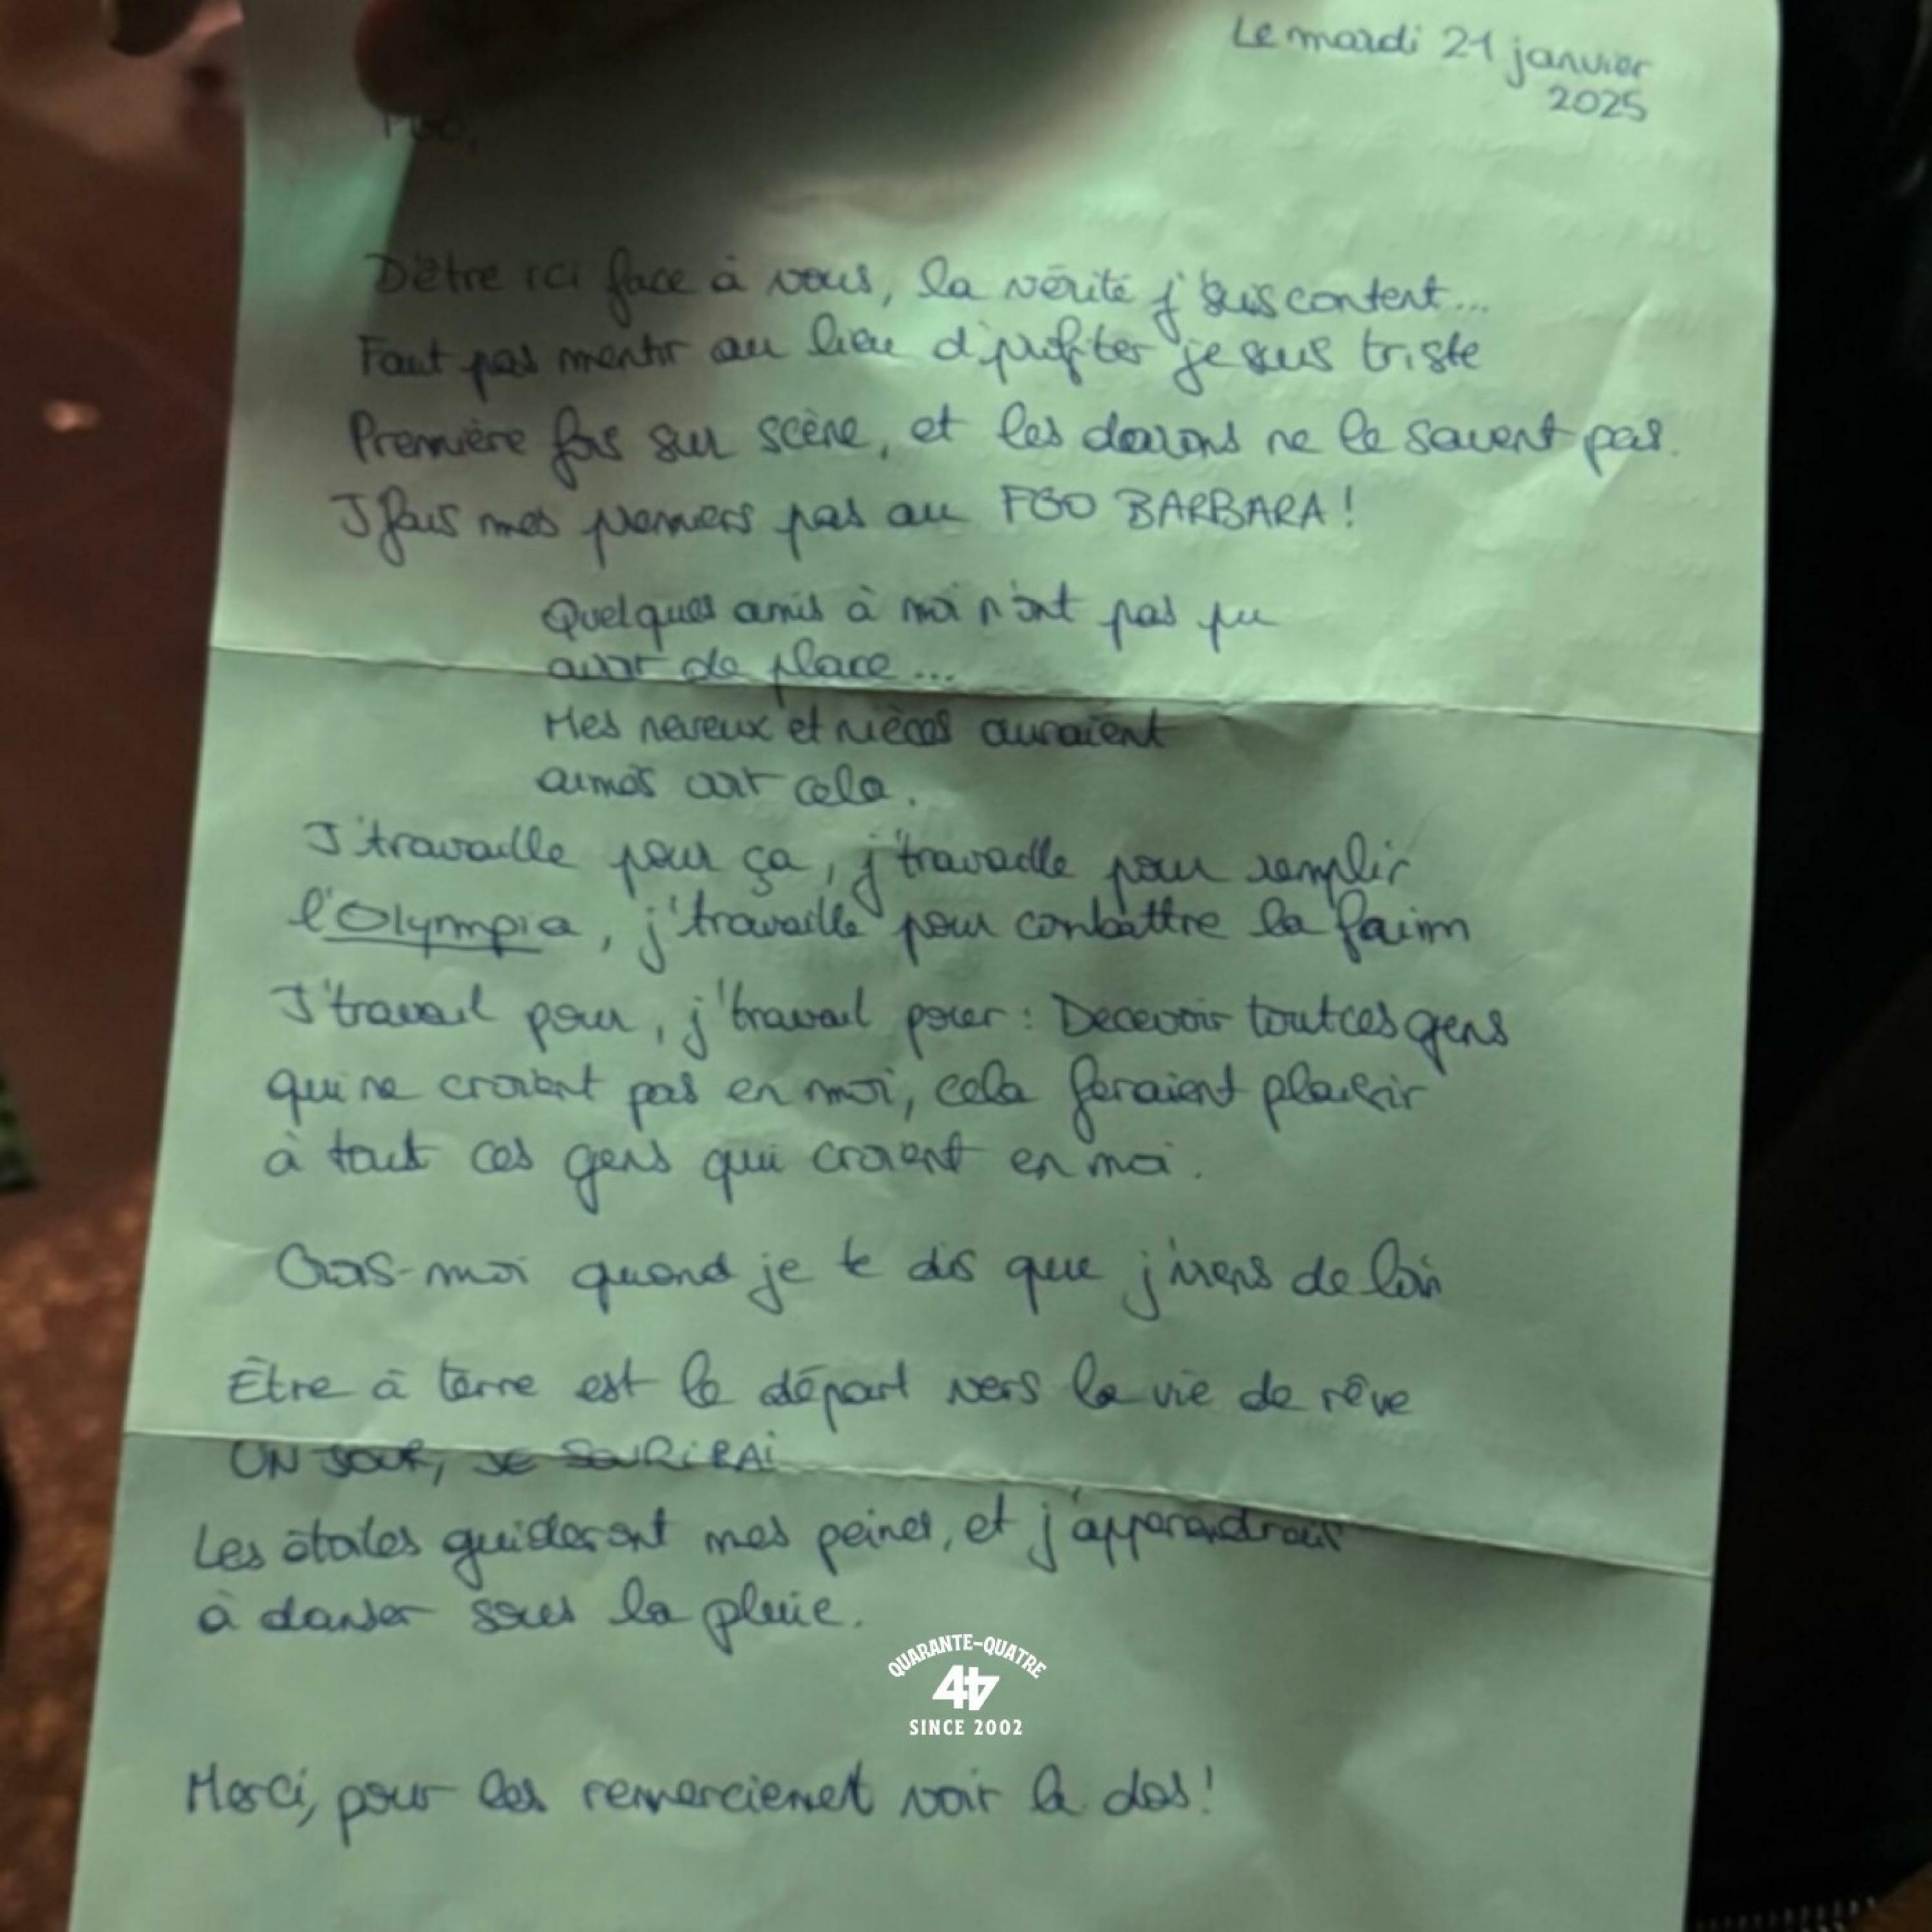 Le mardi 21 janvier
2025
D'être ici face à vous, la vérité j'suis content...
Faut pas mentir au lieu d'profiter je suis triste
Première fois sur scène, et les darons ne le savent pas.
J'fais mes premiers pas au FGO BARBARA!
Quelques amis à moi n'ont pas pu
avoir de place...
Mes neveux et nièces auraient
aimés voir cela.
J'travaille pour ça, j'travaille pour remplir
l'Olympia, j'travaille pour combattre la faim
J'travail pour, j'travail pour : Decevoir tout ces gens
qui ne croient pas en moi, cela feraient plaisir
à tout ces gens qui croient en moi.
Crois-moi quand je te dis que j'viens de loin
Être à terre est le départ vers la vie de rêve
UN JOUR, JE SOURIRAI
Les étoiles guideront mes peines, et j'apprendrais
à danser sous la pluie.
QUARANTE-QUATRE
44
SINCE 2002
Merci, pour les remerciemet voir le dos!